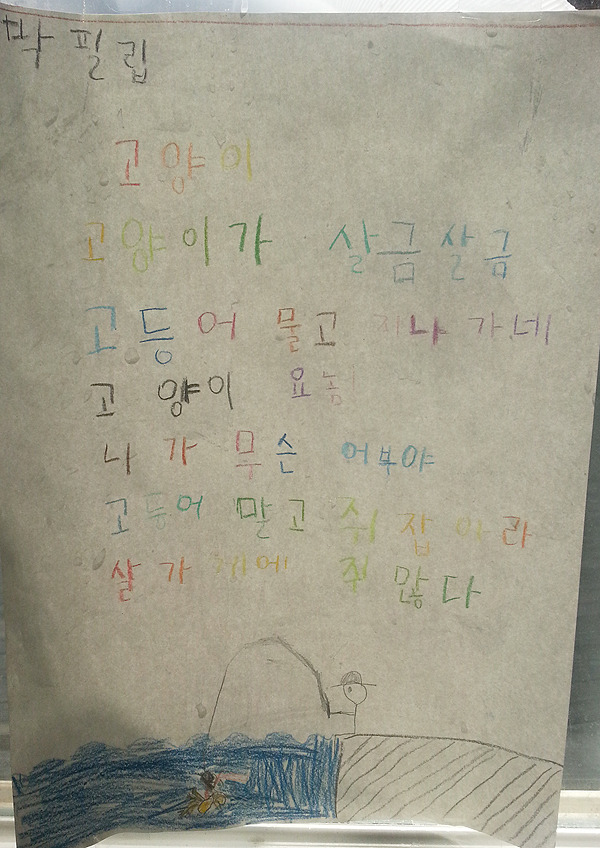 박필립
고양이
고양이가 살금살금
고등어 물고 지나가네
고양이 요놈!
나가 무슨 어부야
고등어 말고 쥐 잡아라
살가게에 쥐 많다